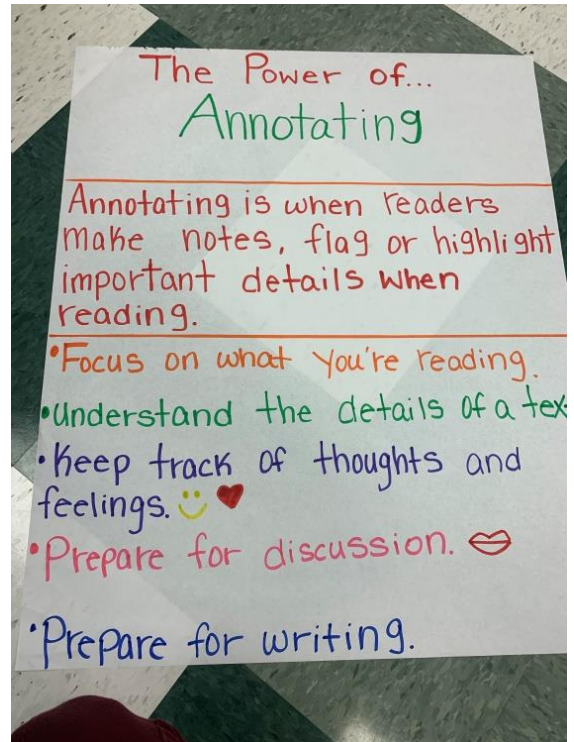 The Power of...
Annotating
Annotating is when readers
make notes, flag or highlight
important details when
reading.
•Focus on what you're reading.
•Understand the details of a tex
•Keep track of thoughts and
feelings.
•Prepare for discussion.
•Prepare for writing.